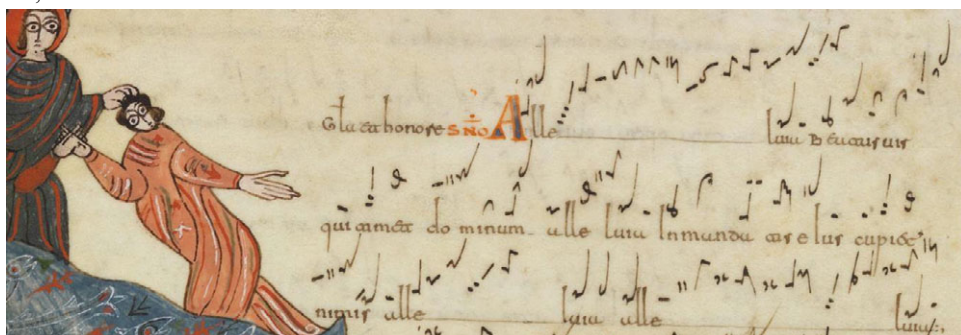 Gła et honore SNO Alle luia Beatus uir
qui timet do minum alle luia In manda tis eius cupiet
nimis alle luia alle luia